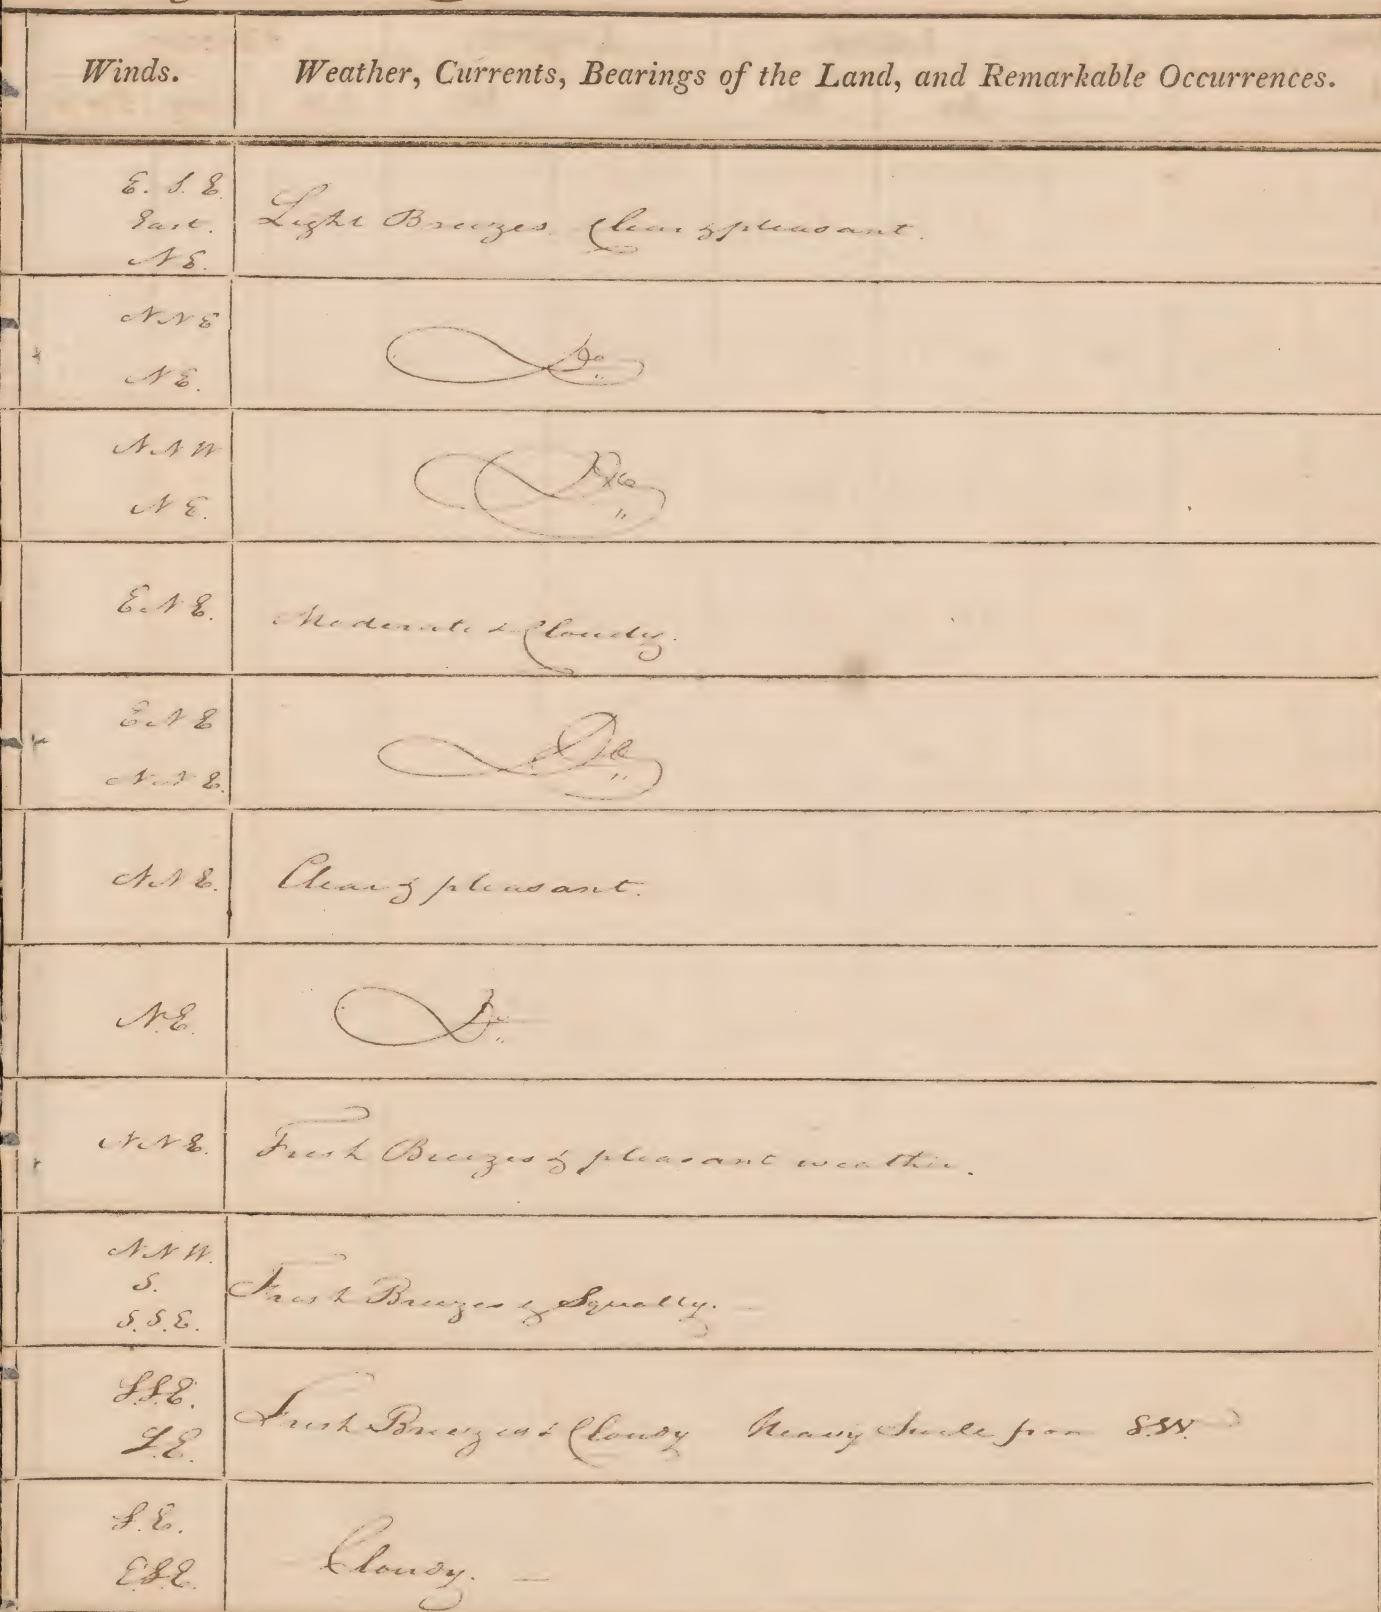 Winds. Weather, Currents, Bearings of the Land, and Remarkable Occurrences.
E. S. E
East. Light Breezes Clear & pleasant.
N E.
N N E
Do
N E.
N N W
Do
N E.
E N E. Moderate & Cloudy.
E N E
Do
N N E.
N N E. Clear & pleasant.
N.E. Do
N N E. Fresh Breezes & pleasant weather.
N N W.
S. Fresh Breezes & Squally.
S. S. E.
S.S.E.
Fresh Breezes & Cloudy Heavy Swell from S.W.
S.E.
S. E.
Cloudy.
E.S.E.